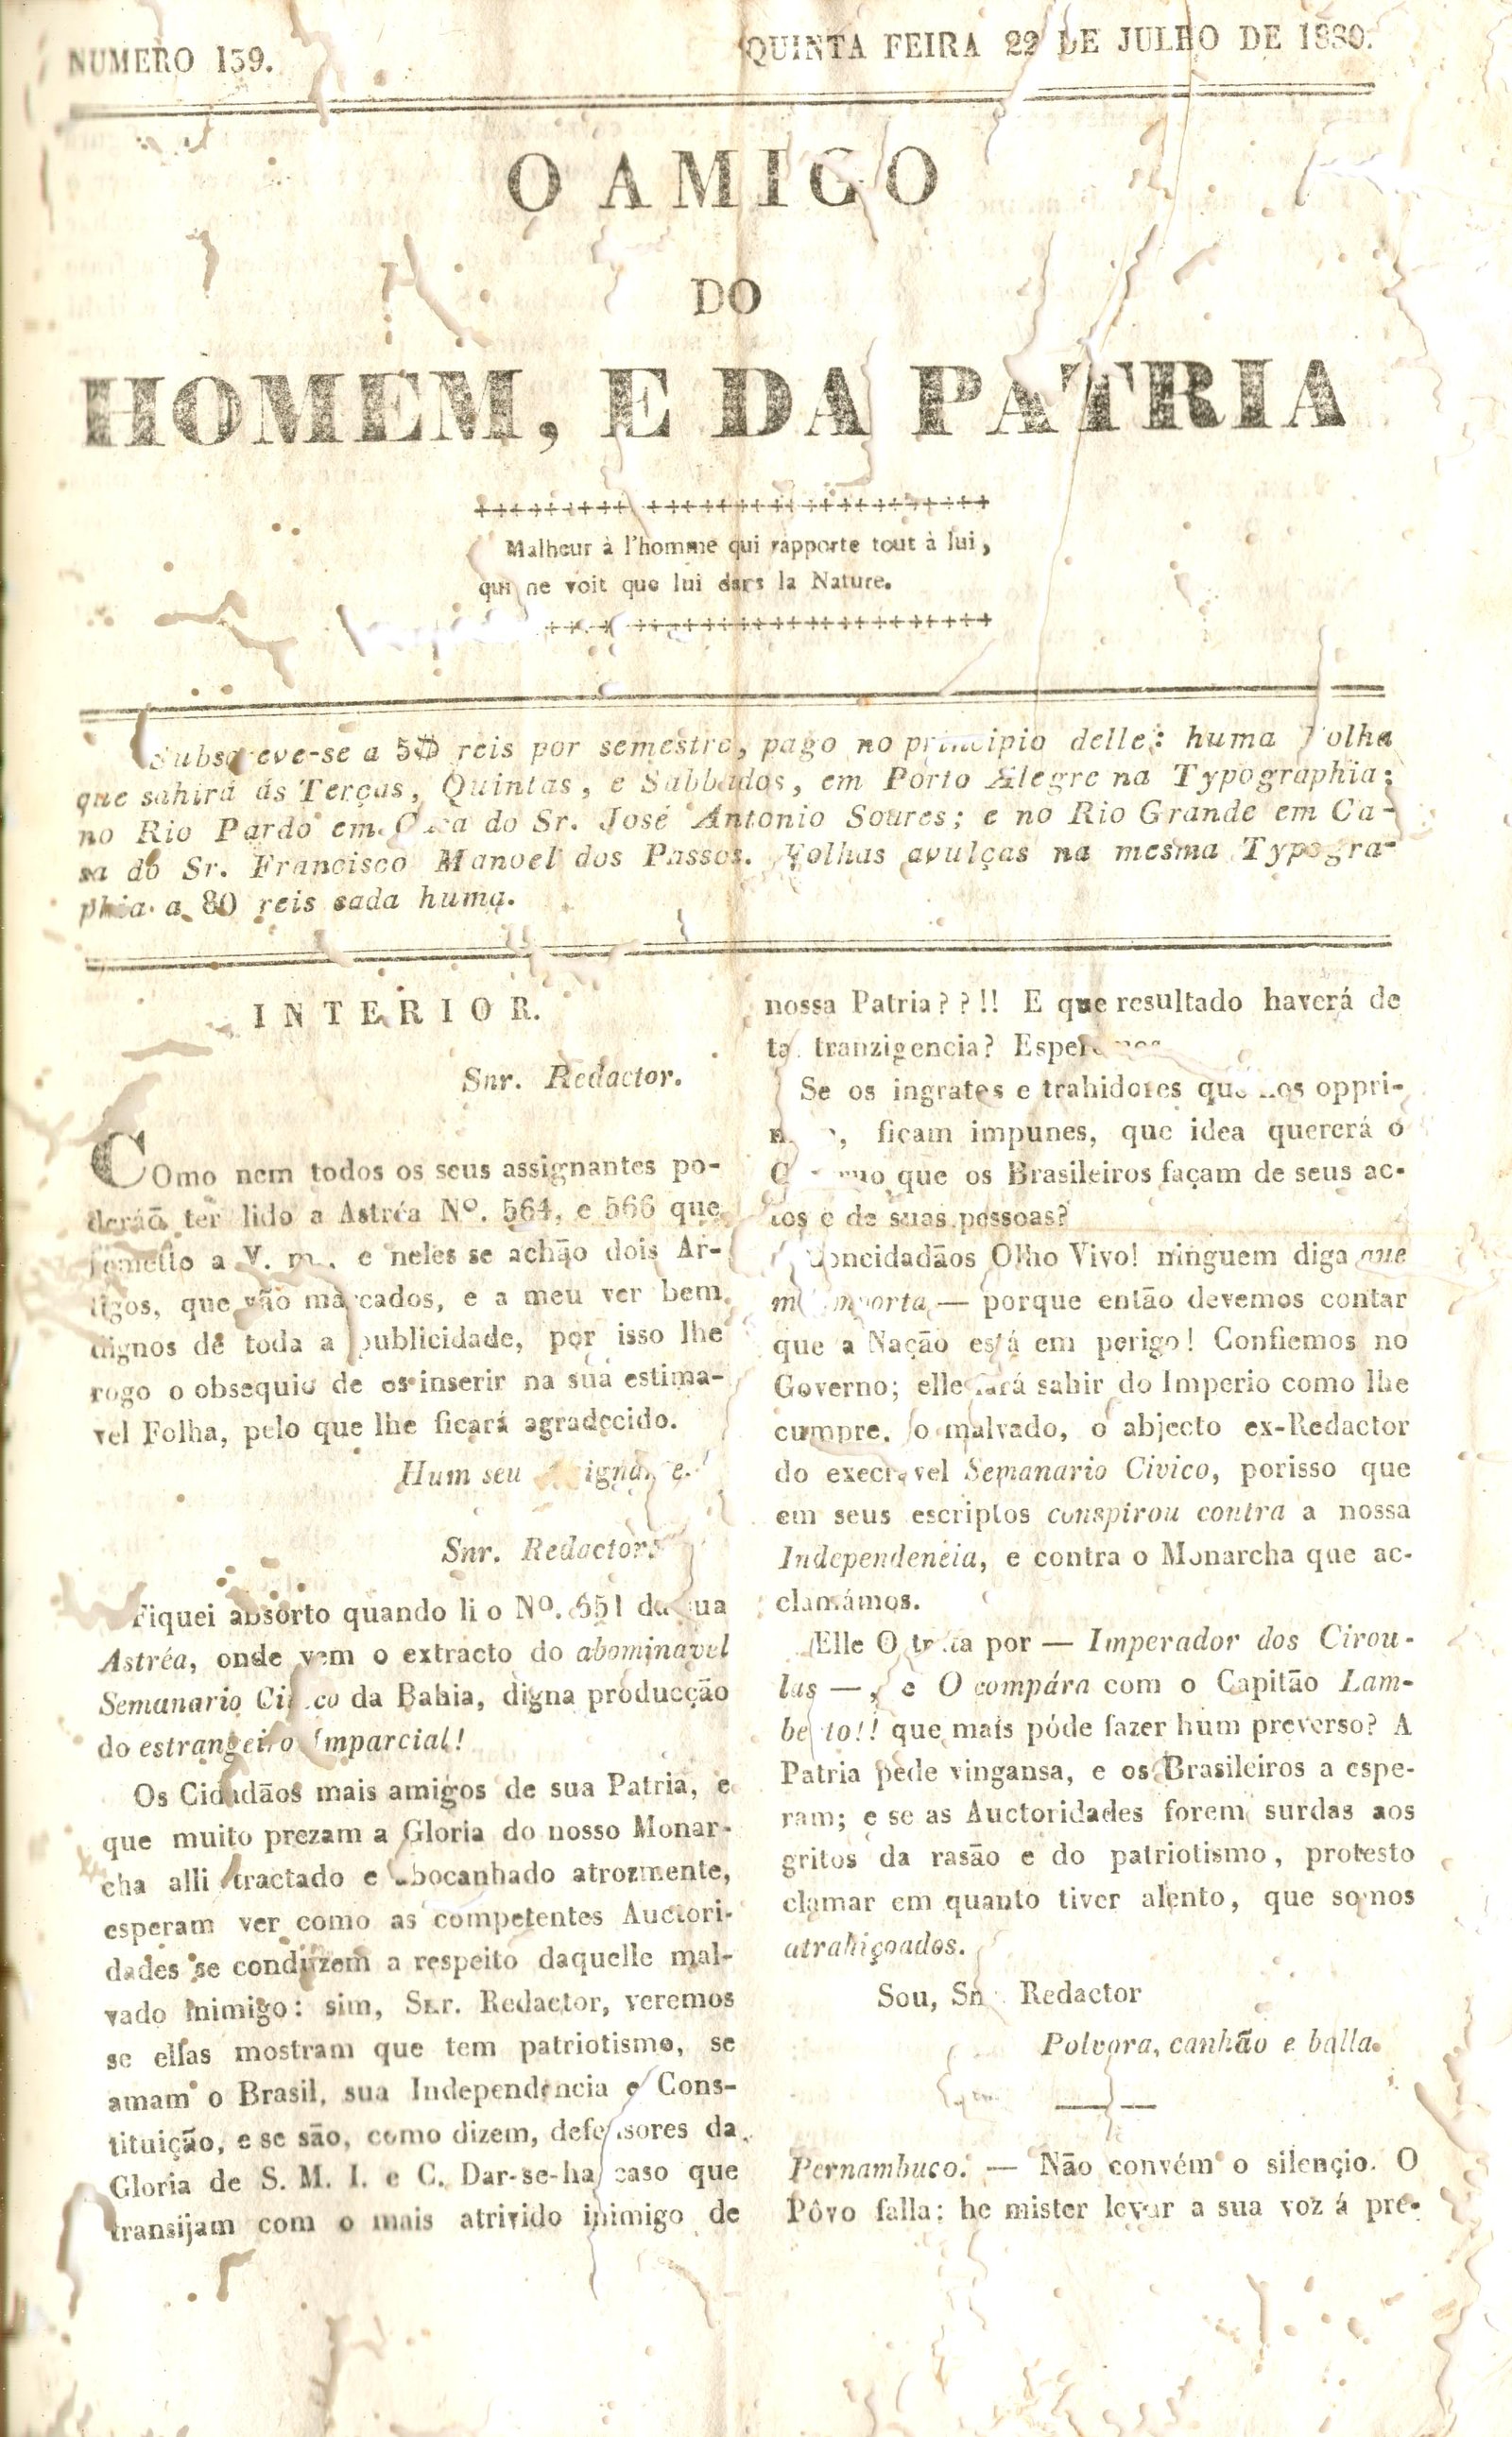 NUMERO 159.
QUINTA FEIRA 22 DE JULHO DE 1830.
O AMIGO
DO
HOMEM, E DA PATRIA
Malheur à l'homme qui rapporte tout à lui,
qui ne voit que lui dans la Nature.
Subscreve-se a 5$ reis por semestre, pago no principio delle: huma Folha
que sahirá ás Terças, Quintas, e Sabbados, em Porto Alegre na Typographia;
no Rio Pardo em Casa do Sr. José Antonio Soares; e no Rio Grande em Ca-
sa do Sr. Francisco Manoel dos Passos. Folhas avulças na mesma Typogra-
phia a 80 reis cada huma.
INTERIOR.
Snr. Redactor.
COmo nem todos os seus assignantes po-
deráõ ter lido a Astréa Nº. 564, e 566 que
remetto a V. m., e neles se achão dois Ar-
tigos, que vão marcados, e a meu ver bem
dignos de toda a publicidade, por isso lhe
rogo o obsequio de os inserir na sua estima-
vel Folha, pelo que lhe ficará agradecido.
Hum seu Assignante.
Snr. Redactor.
Fiquei absorto quando li o Nº. 551 da sua
Astréa, onde vem o extracto do abominavel
Semanario Civico da Bahia, digna producção
do estrangeiro Imparcial!
Os Cidadãos mais amigos de sua Patria, e
que muito prezam a Gloria do nosso Monar-
cha alli tractado e abocanhado atrozmente,
esperam ver como as competentes Auctori-
dades se conduzem a respeito daquelle mal-
vado inimigo: sim, Snr. Redactor, veremos
se ellas mostram que tem patriotismo, se
amam o Brasil, sua Independencia e Cons-
tituição, e se são, como dizem, defensores da
Gloria de S. M. I. e C. Dar-se-ha caso que
transijam com o mais atrivido inimigo de
nossa Patria??!! E que resultado haverá de
tal tranzigencia? Esperemos
Se os ingratos e trahidores que nos oppri-
mem, ficam impunes, que idea quererá o
Governo que os Brasileiros façam de seus ac-
tos e de suas pessoas?
Concidadãos Olho Vivo! ninguem diga que
m'importa — porque então devemos contar
que a Nação está em perigo! Confiemos no
Governo; elle fará sahir do Imperio como lhe
cumpre, o malvado, o abjecto ex-Redactor
do execravel Semanario Civico, porisso que
em seus escriptos conspirou contra a nossa
Independencia, e contra o Monarcha que ac-
clamámos.
Elle O trata por — Imperador dos Cirou-
las —, e O compára com o Capitão Lam-
berto!! que mais póde fazer hum preverso? A
Patria pede vingansa, e os Brasileiros a espe-
ram; e se as Auctoridades forem surdas aos
gritos da rasão e do patriotismo, protesto
clamar em quanto tiver alento, que somos
atrahiçoados.
Sou, Snr. Redactor
Polvora, canhão e balla.
Pernambuco. — Não convém o silençio. O
Pôvo falla; he mister levar a sua voz á pre-